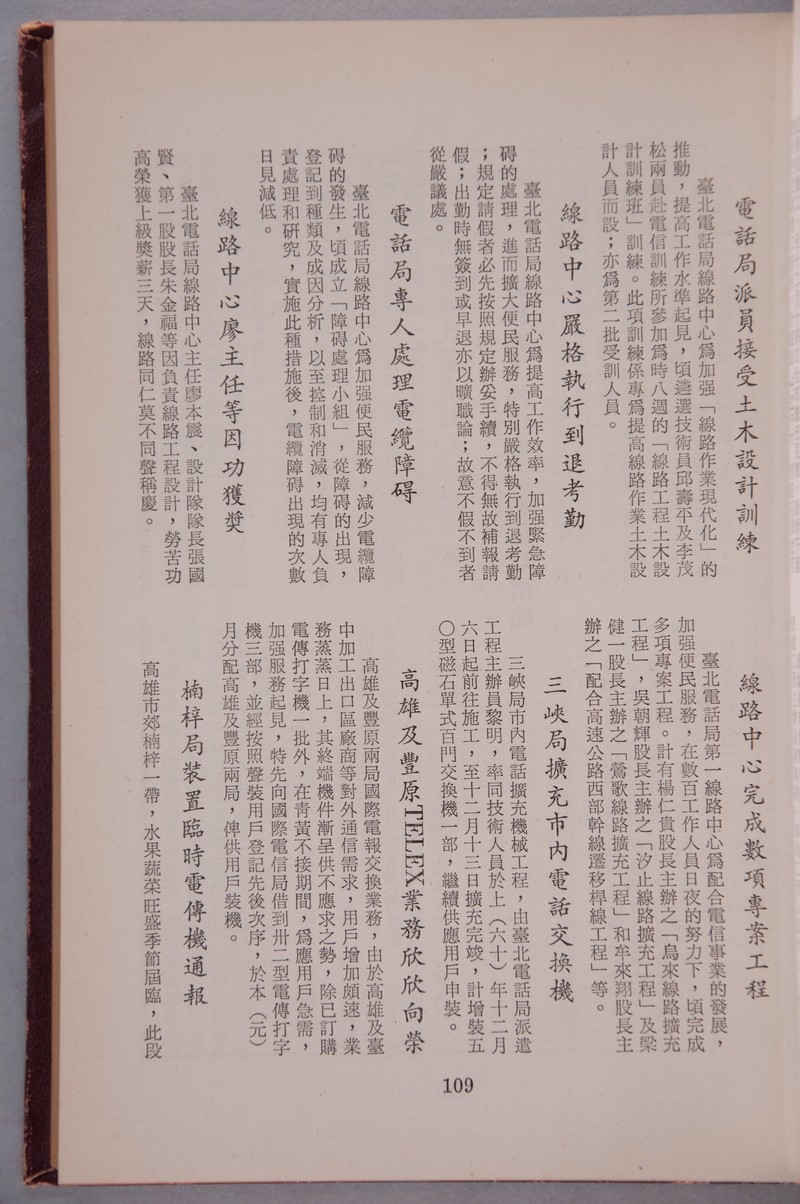 電話局派員接受土木設計訓練
臺北電話局線路中心爲加强「線路作業現代化」的
推動，提高工作水準起見，頃遴選技術員邱壽平及李茂
松兩員赴電信訓練所參加爲時八週的「線路工程土木設
計訓練班」訓練。此項訓練係專爲提高線路作業土木設
計人員而設；亦爲第二批受訓人員。
線路中心嚴格執行到退考勤
臺北電話局線路中心爲提高工作效率，加强緊急障
碍的處理，進而擴大便民服務，特別嚴格執行到退考勤
；規定請假者必先按照規定辦妥手續，不得無故補報請
假；出勤時無簽到或早退亦以曠職論；故意不假不到者
從嚴議處。
電話局專人處理電纜障碍
臺北電話局線路中心爲加强便民服務，減少電纜障
碍的發生，頃成立「障碍處理小組」，從障碍的出現，
登記到種類及成因分析，以至控制和消滅，均有專人負
責處理和研究，實施此種措施後，電纜障碍出現的次數
日見減低。
線路中心廖主任等因功獲奬
臺北電話局線路中心主任廖本震、設計隊隊長張國
賢、第一股股長朱金福等因負責線路工程設計，勞苦功
高榮獲上級奬薪三天，線路同仁莫不同聲稱慶。
線路中心完成數項專案工程
臺北電話局第一線路中心爲配合電信事業的發展，
加强便民服務，在數百工作人員日夜的努力下，頃完成
多項專案工程。計有楊仁貴股長主辦之「烏來線路擴充
工程」，吳朝輝股長主辦之「汐止線路擴充工程」及梁
健一股長主辦之「鶯歌線路擴充工程」和牟來翔股長主
辦之「配合高速公路西部幹線遷移桿線工程」等。
三峽局擴充市內電話交換機
三峽局市內電話擴充機械工程，由臺北電話局派遣
工程主辦員黎明，率同技術人員於上（六十）年十二月
六日起前往施工，至十二月十三日擴充完竣，計增裝五
〇型磁石單式百門交換機一部，繼續供應用戶申裝。
高雄及豐原TELEX業務欣欣向榮
高雄及豐原兩局國際電報交換業務，由於高雄及臺
中加工出口區廠商等對外通信需求，用戶增加頗速，業
務蒸蒸日上，其終端機件漸呈供不應求之勢，除已訂購
電傳打字機一批外，在靑黃不接期間，爲應用戶急需，
加强服務起見，特先向國際電信局借到卅二型電傳打字
機三部，並經按照聲裝用戶登記先後次序，於本（元）
月分配高雄及豐原兩局，俾供用戶裝機。
楠梓局裝置臨時電傳機通報
高雄市郊楠梓一帶，水果蔬菜旺盛季節屆臨，此段
109